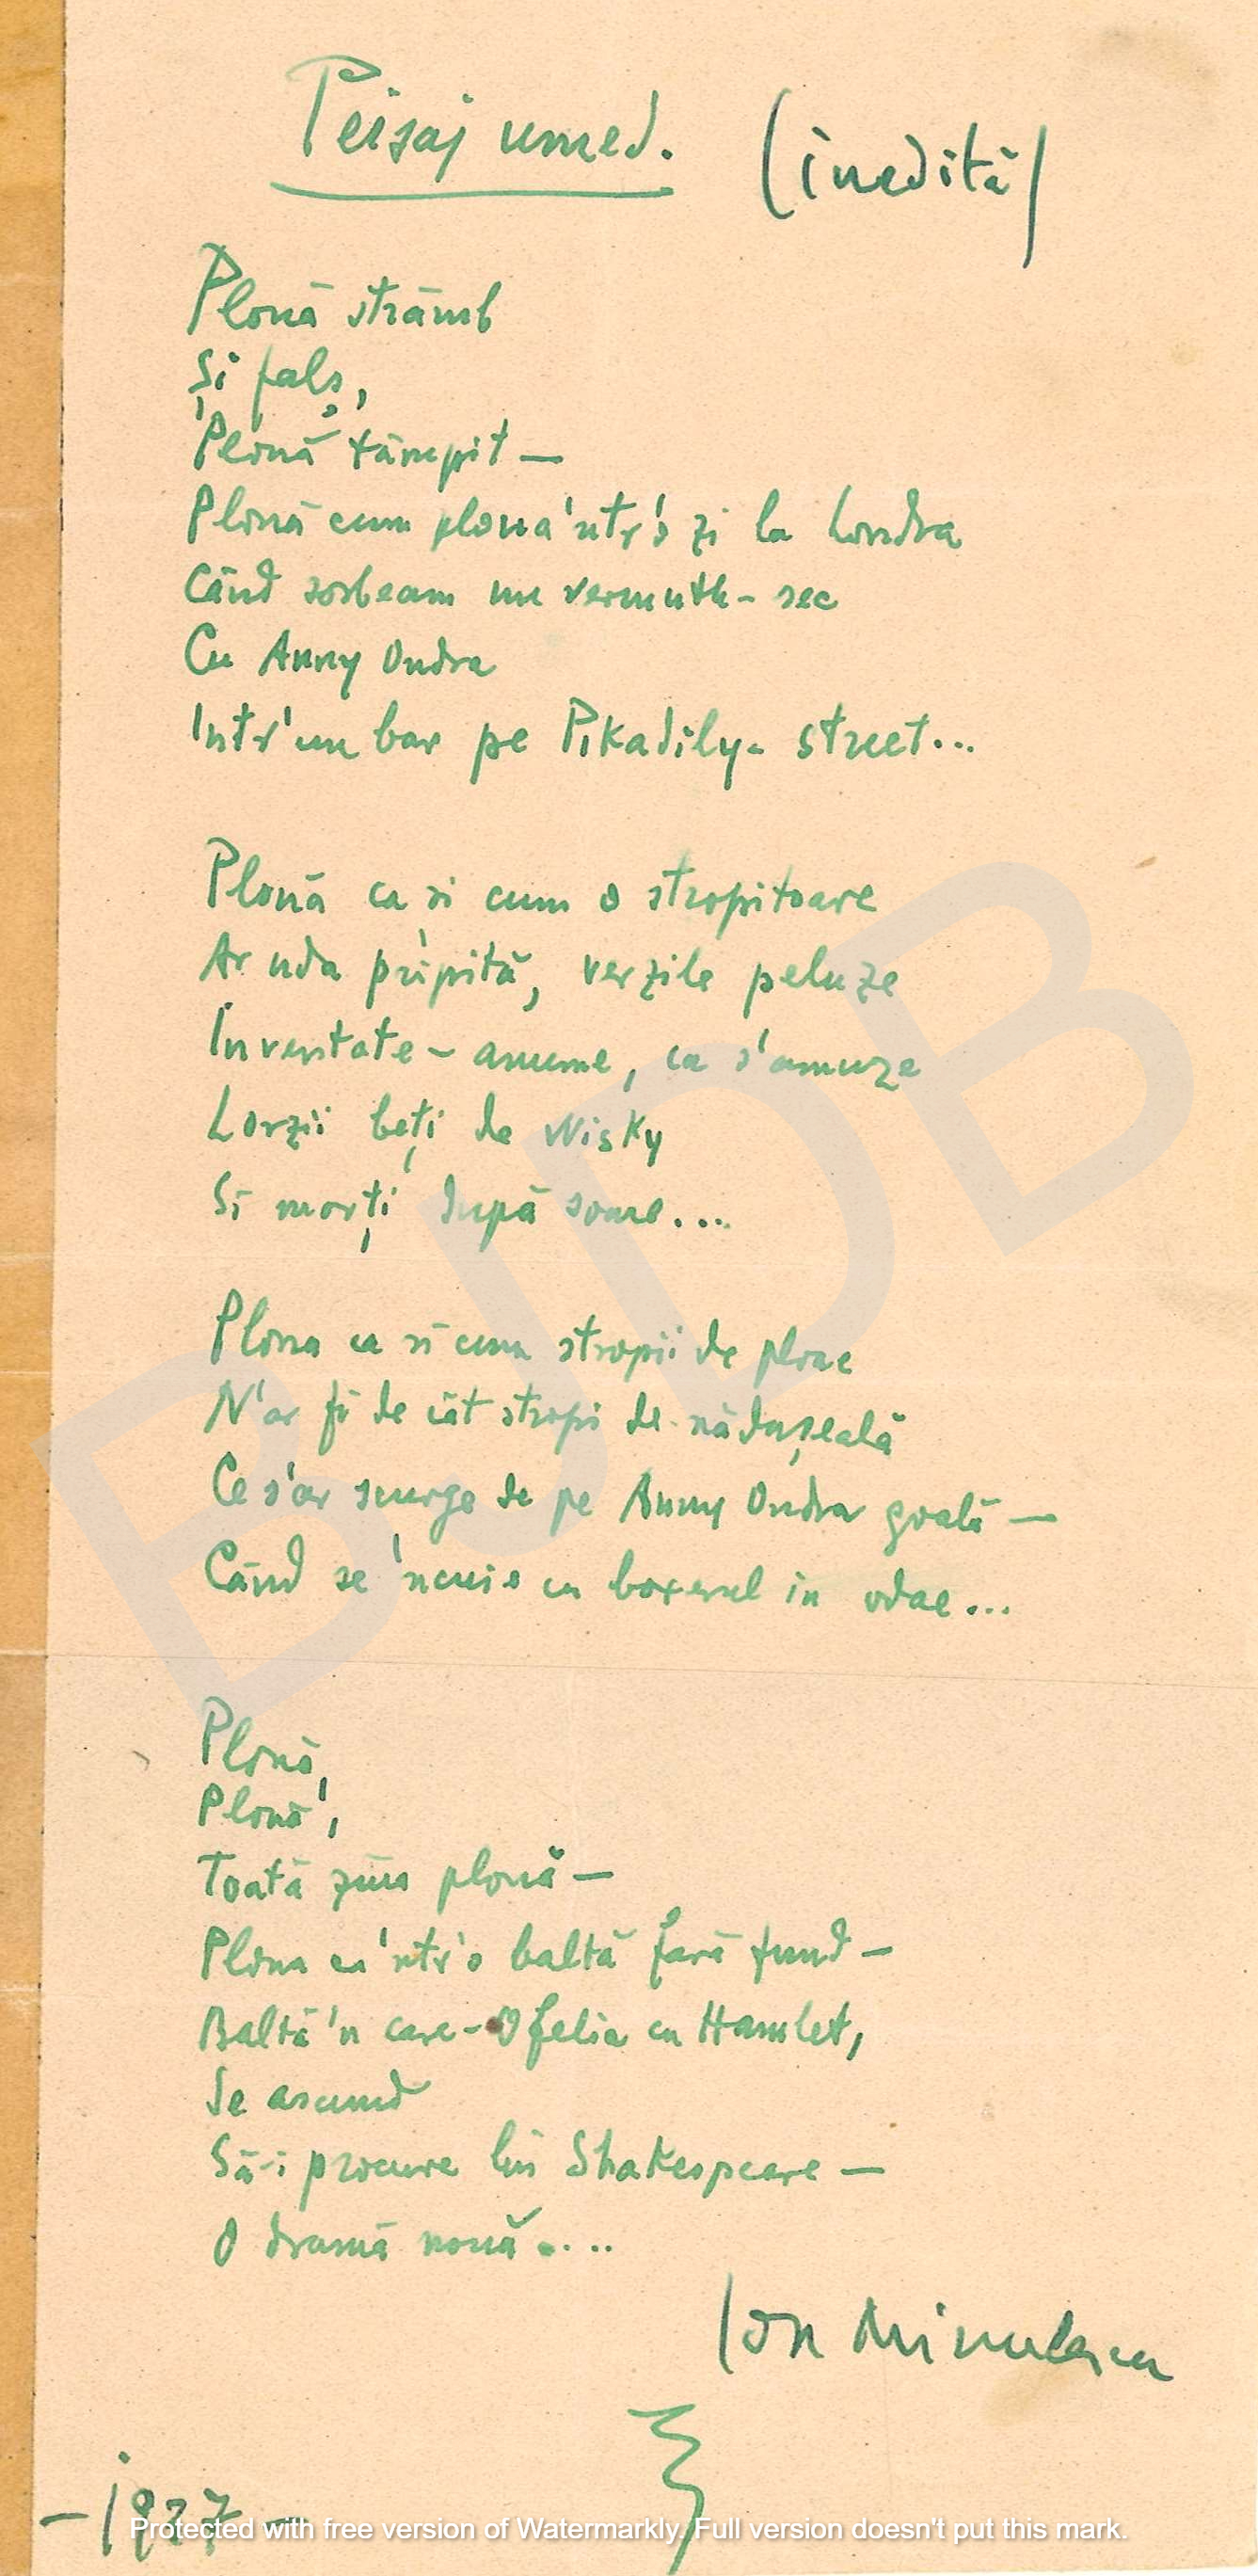 Peisaj umed. (inedită)
Plouă strâmb
Și fals,
Plouă tâmpit —
Plouă cum ploua 'ntr'o zi la Londra
Când sorbeam un vermuth - sec
Cu Anny Ondra
'Ntr'un bar pe Pikadily - street...
Plouă ca si cum o stropitoare
Ar uda pripită, verzile peluze
Inventate - anume, ca s'amuze
Lorzii beți de Wisky
Si morți după soare....
Ploua ca si cum stropii de ploae
N'ar fi de cât stropi de nădușeală
Ce s'ar scurge de pe Anny Ondra goală —
Când se 'ncuie cu boxerul in odae...
Plouă,
Plouă,
Toată ziua plouă —
Ploua ca 'ntr'o baltă fără fund —
Baltă 'n care - Ofelia cu Hamlet,
Se ascund
Să-i procure lui Shakespeare —
O dramă nouă....
Ion Minulescu
BJDB
Protected with free version of Watermarkly. Full version doesn't put this mark.